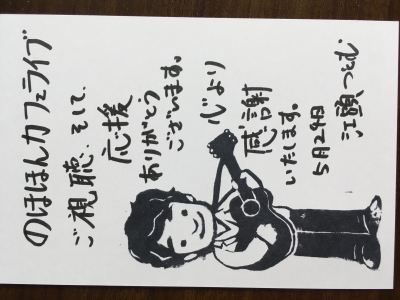 のほほんカフェライブ
ご視聴、そして、
応援
ありがとう
ございます。
心より
感謝
いたします。
5月29日
江頭つとむ